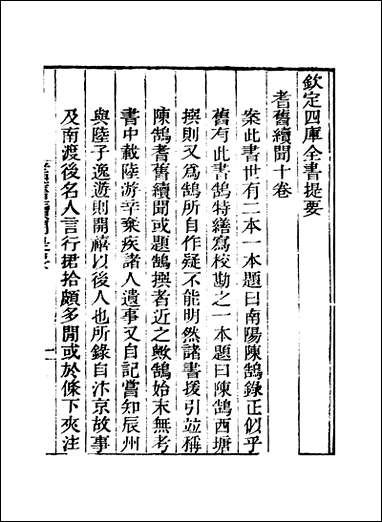 欽定四庫全書提要
耆舊續聞十卷
案此書世有二本一本題曰南陽陳鵠錄正似乎
舊有此書鵠特繕寫校勘之一本題曰陳鵠西塘
撰則又為鵠所自作疑不能明然諸書援引並稱
陳鵠耆舊續聞或題鵠撰者近之歟鵠始末無考
書中載陸游辛棄疾諸人遺事又自記嘗知辰州
與陸子逸遊則開禧以後人也所錄自汴京故事
及南渡後名人言行捃拾頗多閒或於條下夾注